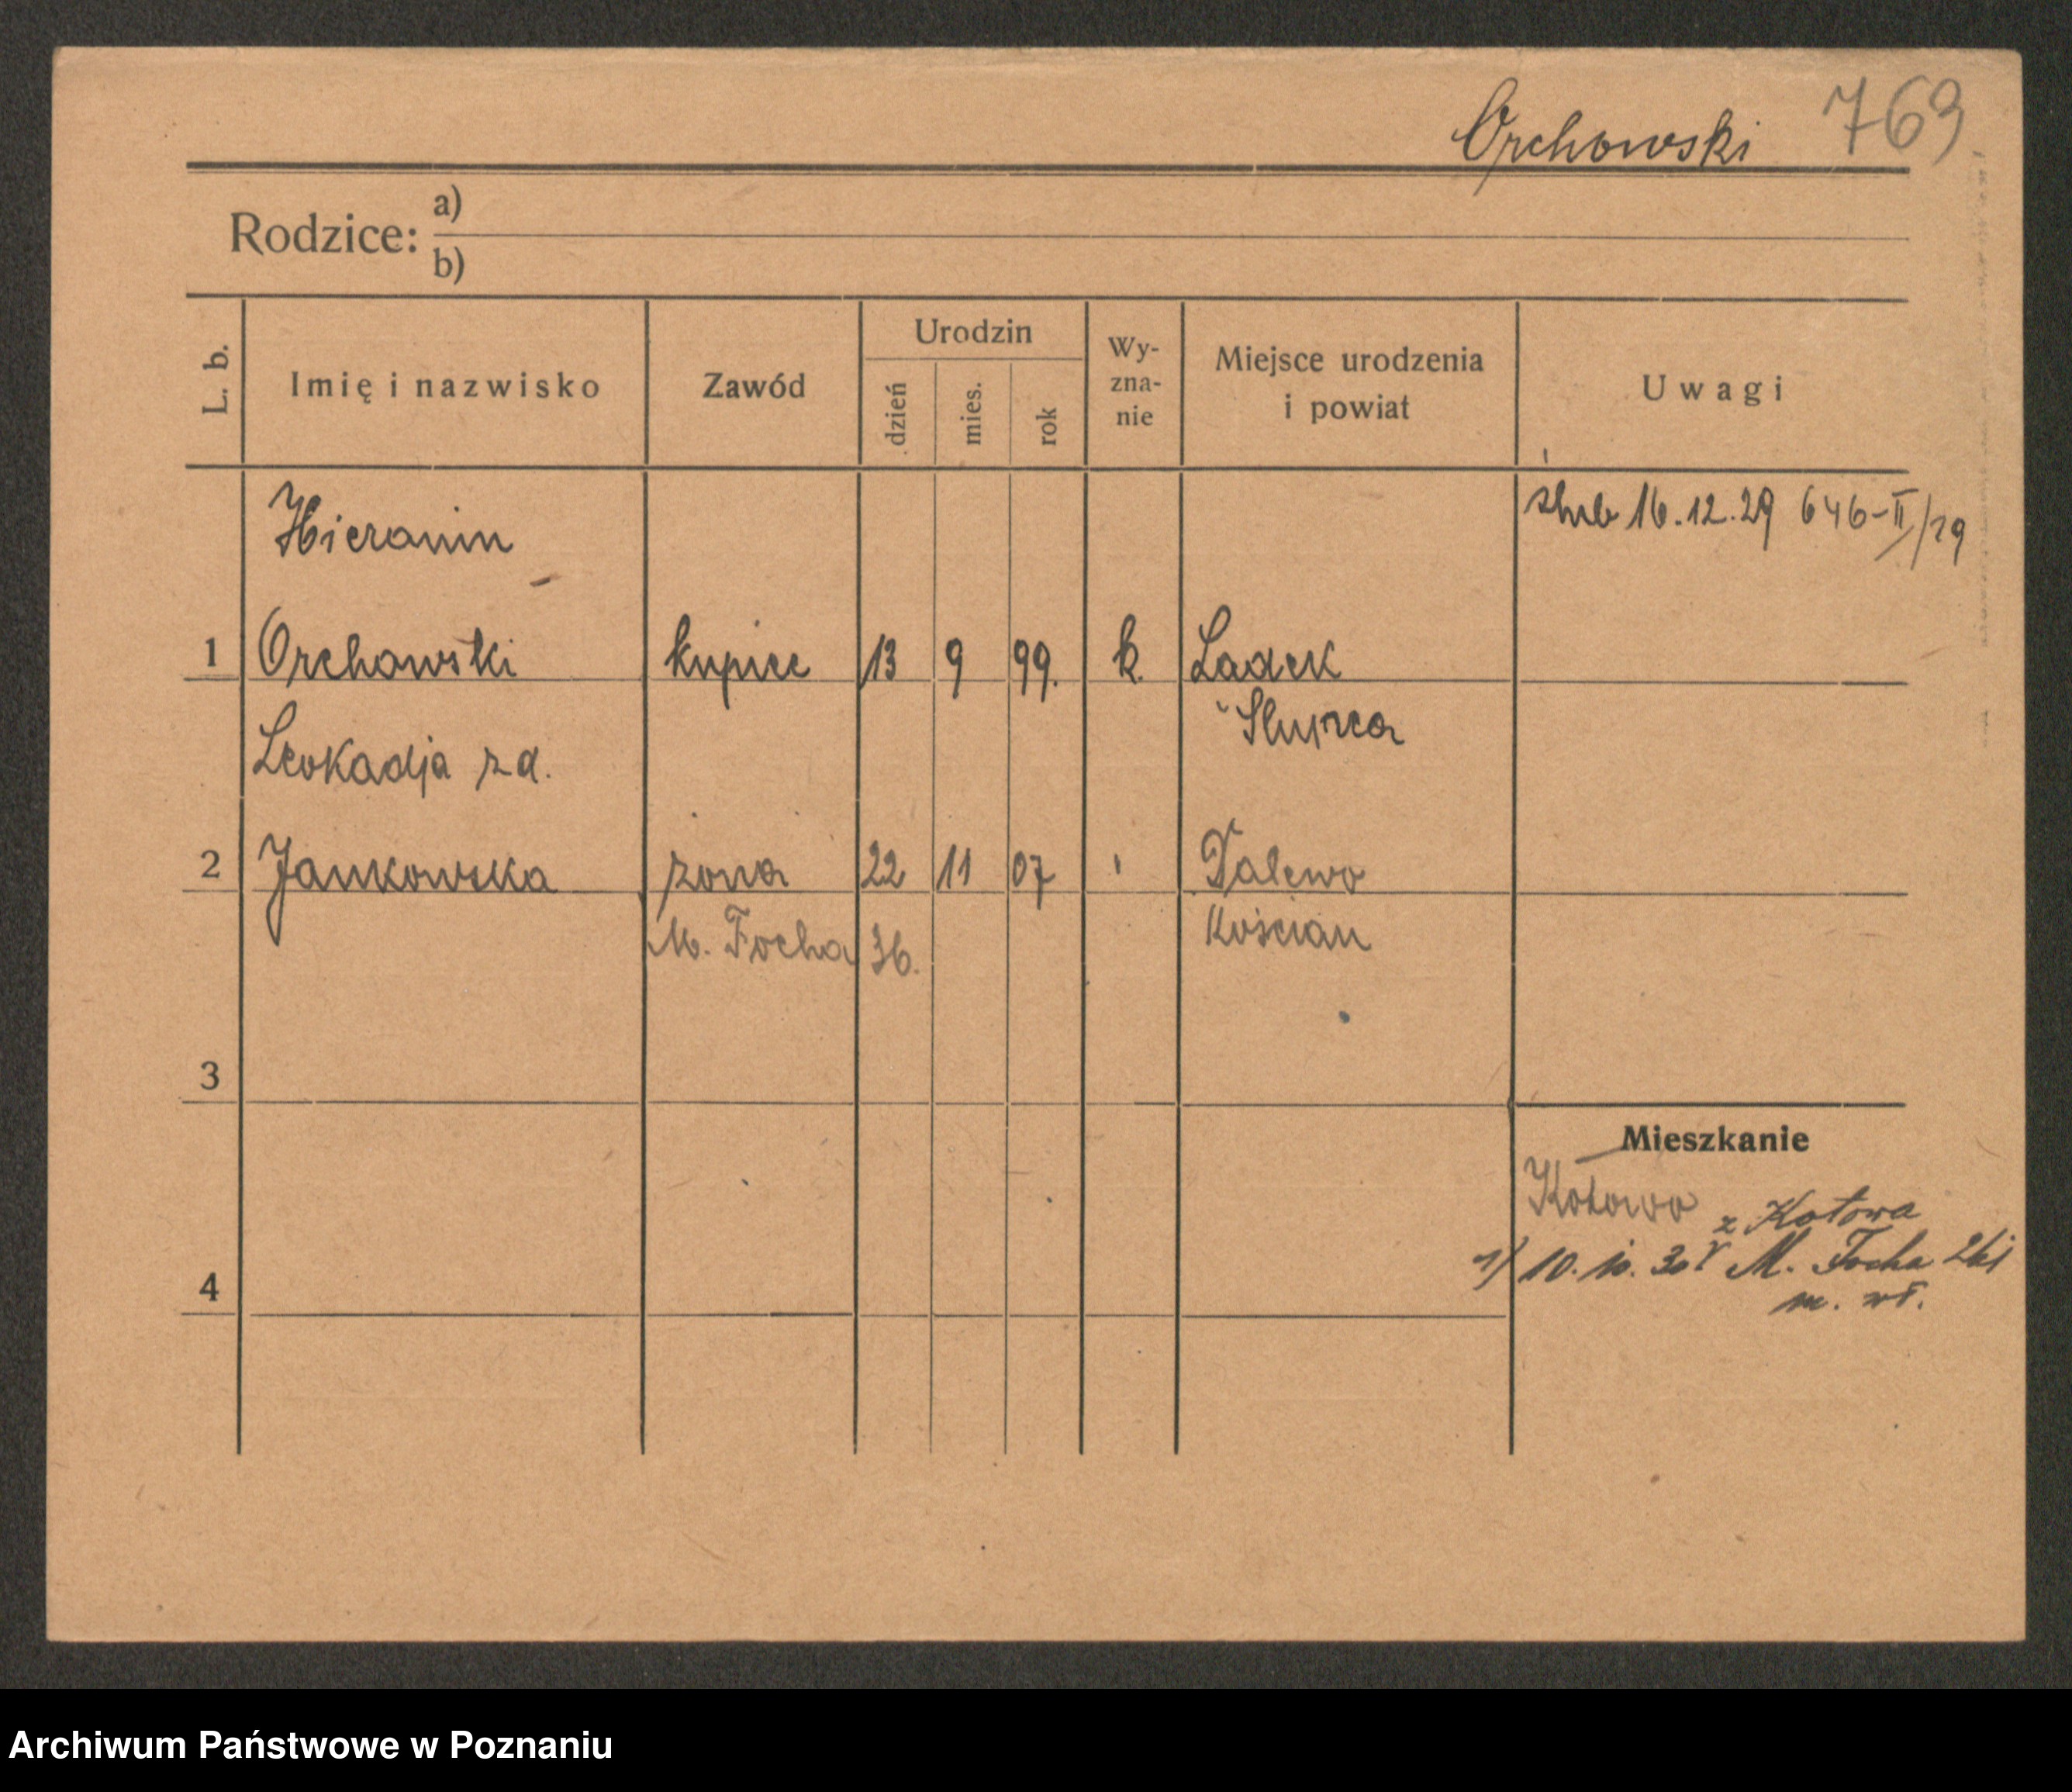 Orchowski 769
Rodzice: a)
b)
L. b.
Imię i nazwisko
Zawód
Urodzin
dzień
mies.
rok
Wy-
zna-
nie
Miejsce urodzenia
i powiat
Uwagi
Hieronim
ślub 16.12.29 646-II/29
1 Orchowski kupiec 13 9 99. k. Ladek
Słupca
Leokadja zd.
2 Jankowska żona 22 11 07 Dalewo
M. Focha 36. Kościan
3
Mieszkanie
Kotowo
z Kotowa
1) 10. 10. 30 r M. Focha
m. wł.
4
Archiwum Państwowe w Poznaniu